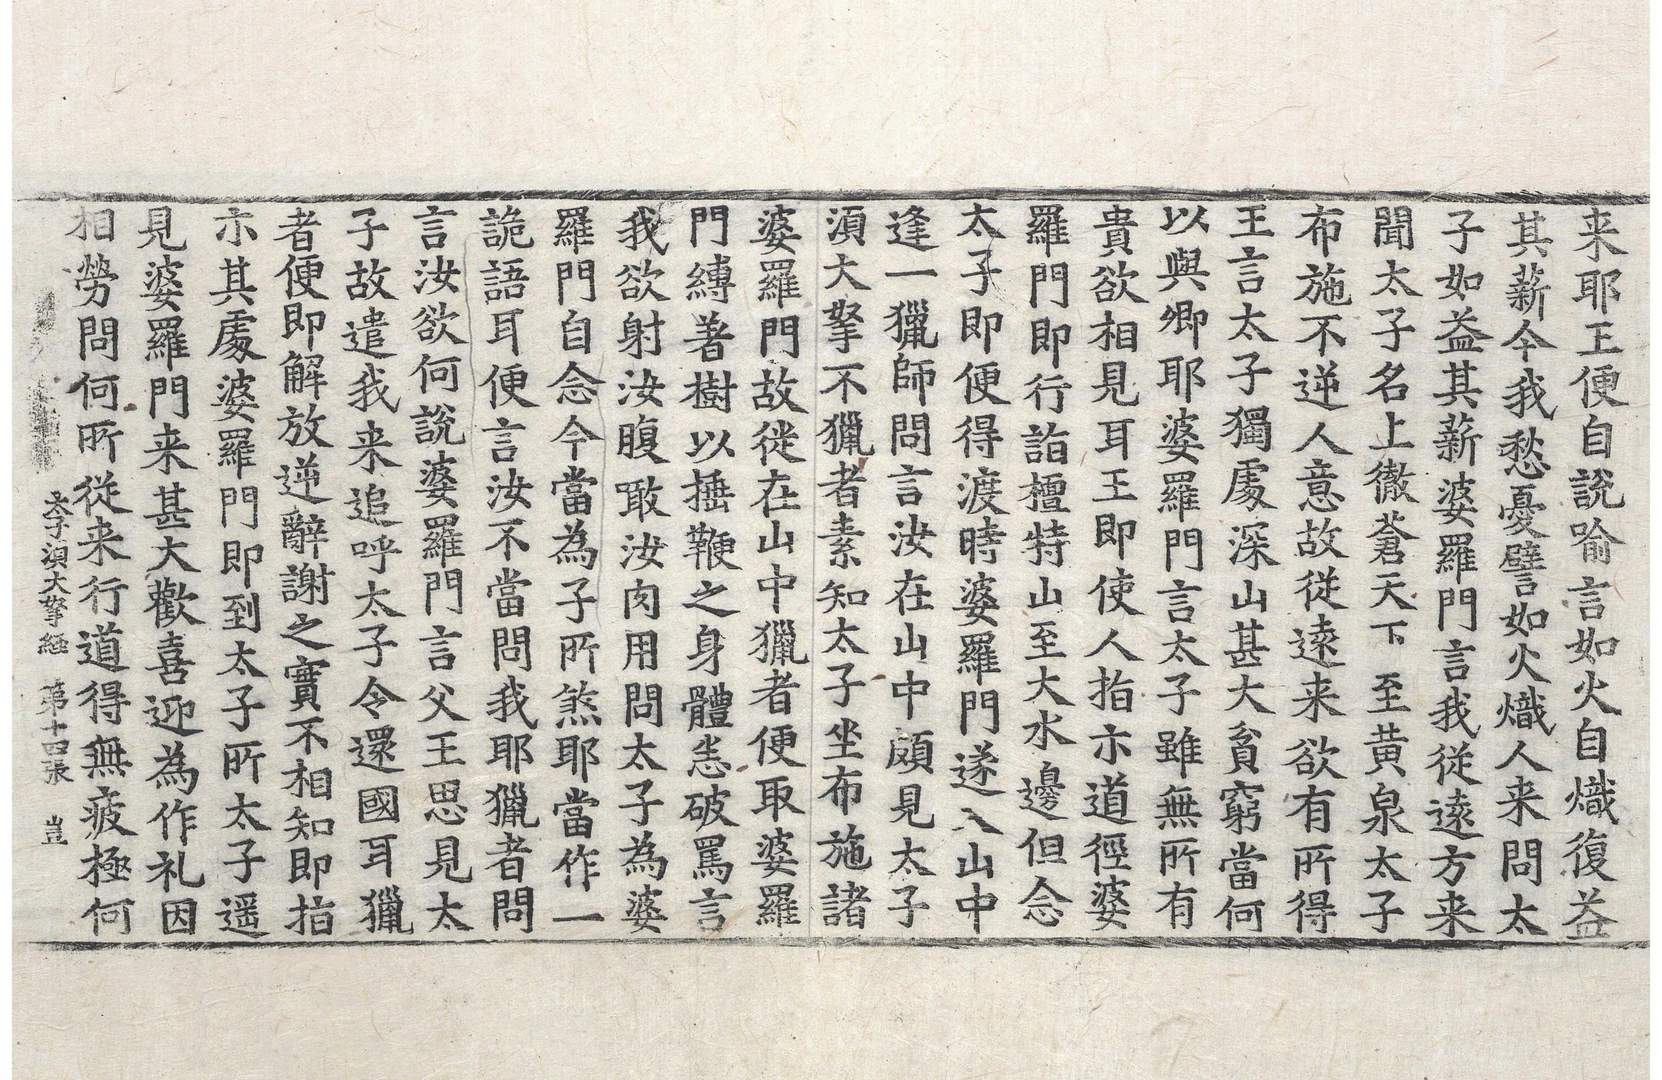 来耶王便自說喻言如火自熾復益
其薪今我愁憂譬如火熾人来問太
子如益其薪婆羅門言我従逺方来
聞太子名上徹蒼天下至黄泉太子
布施不逆人意故従逺来欲有所得
王言太子獨處深山甚大貧窮當何
以與卿耶婆羅門言太子雖無所有
貴欲相見耳王即使人指示道徑婆
羅門即行詣檀特山至大水邊但念
太子即便得渡時婆羅門遂入山中
逢一獵師問言汝在山中頗見太子
湏大拏不獵者素知太子坐布施諸
婆羅門故徙在山中獵者便取婆羅
門縛著樹以捶鞭之身體悉破罵言
我欲射汝腹噉汝肉用問太子為婆
羅門自念今當為子所煞耶當作一
詭語耳便言汝不當問我耶獵者問
言汝欲何說婆羅門言父王思見太
子故遣我来追呼太子令還國耳獵
者便即解放逆辭謝之實不相知即指
示其處婆羅門即到太子所太子遥
見婆羅門来甚大歡喜迎為作礼因
相勞問何所従来行道得無疲極何
太子湏大拏経 第十四張 豈